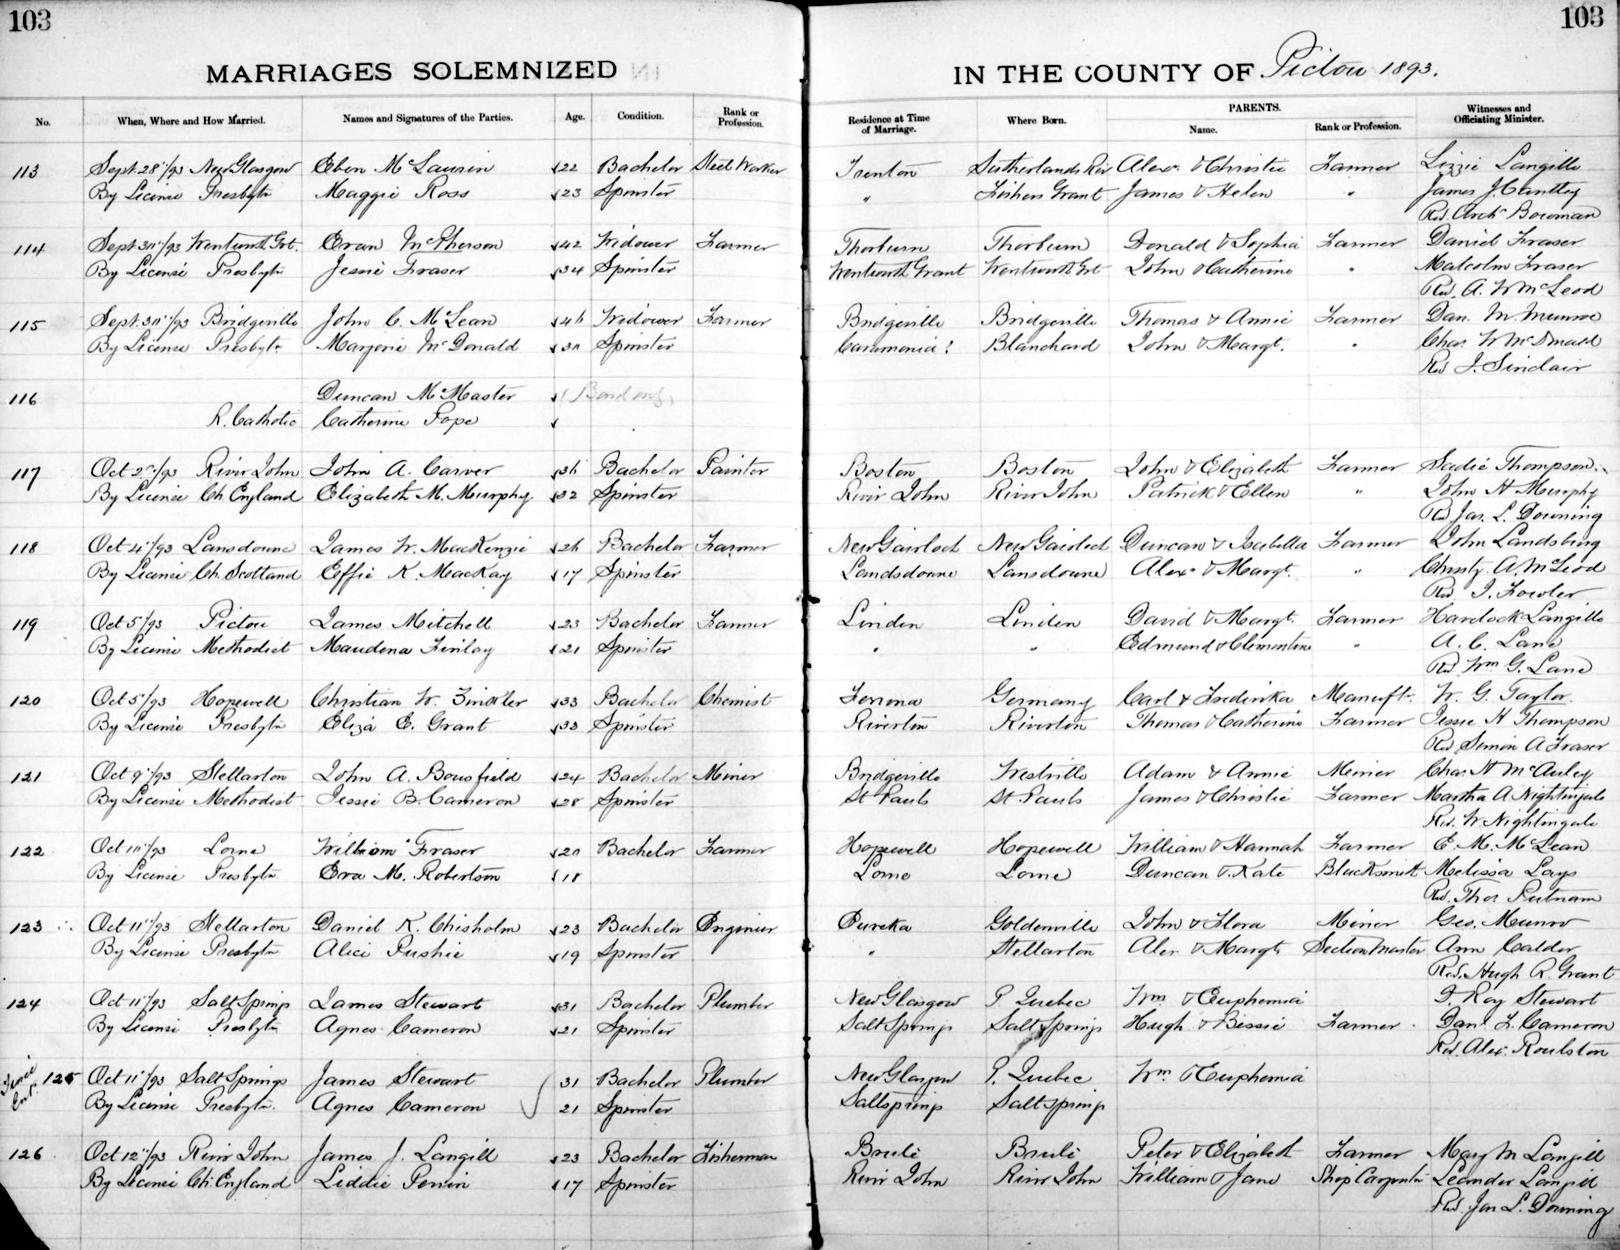 103
103
MARRIAGES SOLEMNIZED
IN THE COUNTY OF Pictou 1893.
No. When, Where and How Married. Names and Signatures of the Parties. Age. Condition. Rank or Profession. Residence at Time of Marriage. Where Born. PARENTS. Name. Rank or Profession. Witnesses and Officiating Minister.
113 Sept. 28"/93 New Glasgow Eben McLauren 22 Bachelor Steel Worker Trenton Sutherlands Riv Alex. & Christie Farmer Lizzie Langille
By License Presbytn Maggie Ross 23 Spinster " Fishers Grant James & Helen " James J. Cantley
Rev. Arch. Bowman
114 Sept 30"/93 Wentworth Grt. Evan McPherson 42 Widower Farmer Thorburn Thorburn Donald & Sophia Farmer Daniel Fraser
By License Presbytn Jessie Fraser 34 Spinster Wentworth Grant Wentworth Grt John & Catherine " Malcolm Fraser
Rev. A. W McLeod
115 Sept. 30"/93 Bridgeville John C. McLean Widower Farmer Bridgeville Bridgeville Thomas & Annie Farmer Dan. M. Munroe
By License Presbytn Marjorie McDonald 30 Spinster Blanchard John & Margt. " Chas. W McDonald
Rev J. Sinclair
116 Duncan McMaster
R. Catholic Catherine Pope
117 Oct 2"/93 River John John A. Carver Bachelor Painter Boston Boston John & Elizabeth Farmer Sadie Thompson
By License Ch England Elizabeth M. Murphy 32 Spinster River John River John Patrick & Ellen " John H Murphy
Rev Jas. L. Downing
118 Oct 4"/93 Lansdowne James W. MacKenzie Bachelor Farmer New Gairloch New Gairloch Duncan & Isabella Farmer John Landsburg
By License Ch. Scotland Effie K. MacKay 17 Spinster Landsdowne Lansdowne Alex & Margt. " Christy. A. McLeod
Rev J. Fowler
119 Oct 5"/93 Pictou James Mitchell 23 Bachelor Farmer Linden Linden David & Margt. Farmer Havelock Langille
By License Methodist Maudena Finlay 21 Spinster " " Edmund & Clementine " A. C. Lane
Rev Wm G. Lane
120 Oct 5"/93 Hopewell Christian W. 33 Bachelor Chemist Ferrona Germany Carl & Fredirika Manuft. W. G. Taylor.
By License Presbytn Eliza E. Grant 33 Spinster Riverton Riverton Thomas & Catherine Farmer Jessie H Thompson
Rev Simon A Fraser
121 Oct 9"/93 Stellarton John A. Bousfield 24 Bachelor Miner Bridgeville Westville Adam & Annie Miner Chas. H McAuley
By License Methodist Jessie B. Cameron 28 Spinster St Pauls St. Pauls James & Christie Farmer Martha A Nightingale
Rev. W. Nightingale
122 Oct 10"/93 Lorne William Fraser 20 Bachelor Farmer Hopewell Hopewell William & Hannah Farmer E. M. McLean
By License Presbytn Eva M. Robertson 18 Lorne Lorne Duncan & Kate Blacksmith Melissa Lays
Rev. Thos Putnam
123 Oct 11"/93 Stellarton Daniel K. Chisholm 23 Bachelor Enginier Eureka Goldenville John & Flora Miner Geo. Munro
By License Presbytn Alice Pushie 19 Spinster " Stellarton Alex & Margt Section Master Ann Calder
Rev. Hugh R. Grant
124 Oct 11"/93 Salt Springs James Stewart 31 Bachelor Plumber New Glasgow P. Quebec Wm & Euphemia D. Ray Stewart
By License Presbytn Agnes Cameron 21 Spinster Salt Springs Salt Springs Hugh & Bessie Farmer Danl F. Cameron
Rev. Alex. Roulston
Twice Ent. 125 Oct 11"/93 Salt Springs James Stewart 31 Bachelor Plumber New Glasgow P. Quebec Wm & Euphemia
By License Presbytn. Agnes Cameron 21 Spinster Saltsprings Saltsprings
126 Oct 12"/93 River John James J. Langill 23 Bachelor Fisherman Brule Brule Peter & Elizabeth Farmer Mary M Langill
By License Ch. England Liddie Perrin 17 Spinster River John River John William & Jane Ship Carpenter Leander Langill
Rev. Jas L. Downing